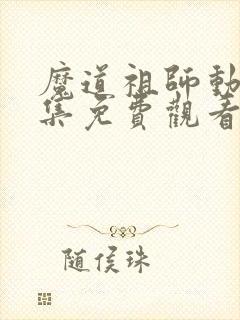 魔道祖師動
集免費觀看
随侯珠